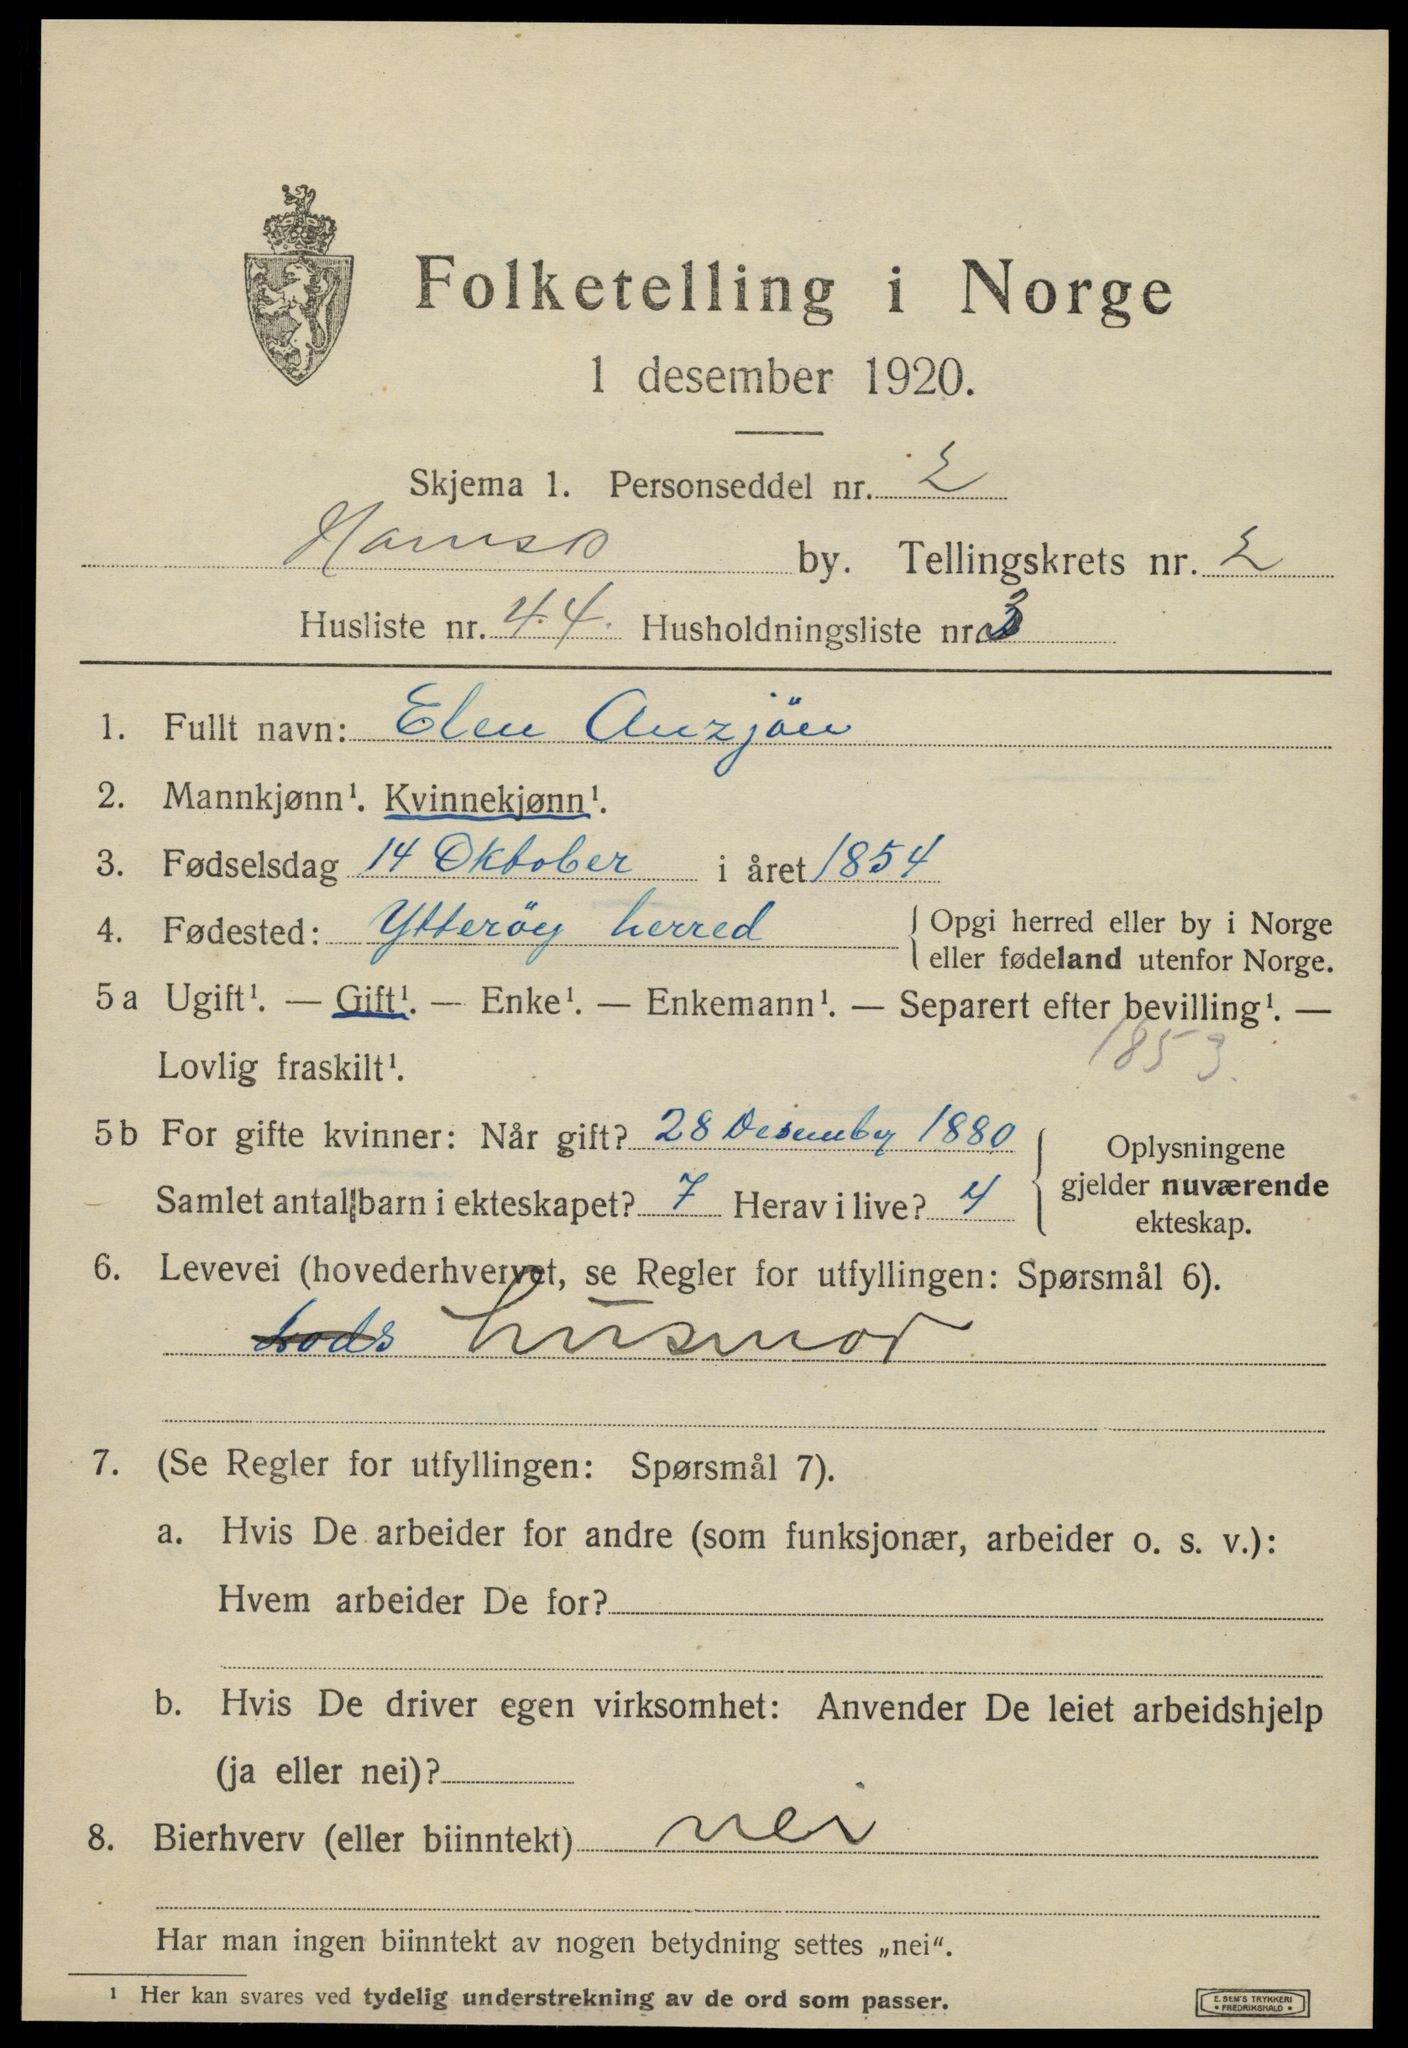 Folketelling i Norge
1 desember 1920.
Skjema 1. Personseddel nr. 2
Namsos by. Tellingskrets nr. 2
Husliste nr. 44. Husholdningsliste nr. 3
1. Fullt navn: Elen Anzjön
2. Mannkjønn¹. Kvinnekjønn¹.
3. Fødselsdag 14 Oktober i året 1854
4. Fødested: Ytteröy herred { Opgi herred eller by i Norge
eller fødeland utenfor Norge.
5 a Ugift¹. — Gift¹. — Enke¹. — Enkemann¹. — Separert efter bevilling¹. —
Lovlig fraskilt¹. 1853.
5 b For gifte kvinner: Når gift? 28 Desember 1880
Samlet antal barn i ekteskapet? 7 Herav i live? 4
{ Oplysningene
gjelder nuværende
ekteskap.
6. Levevei (hovederhvervet, se Regler for utfyllingen: Spørsmål 6).
Lods husmor
7. (Se Regler for utfyllingen: Spørsmål 7).
a. Hvis De arbeider for andre (som funksjonær, arbeider o. s. v.):
Hvem arbeider De for?
b. Hvis De driver egen virksomhet: Anvender De leiet arbeidshjelp
(ja eller nei)?
8. Bierhverv (eller biinntekt) nei
Har man ingen biinntekt av nogen betydning settes „nei“.
¹ Her kan svares ved tydelig understrekning av de ord som passer.
E. SEM'S TRYKKERI
• FREDRIKSHALD •